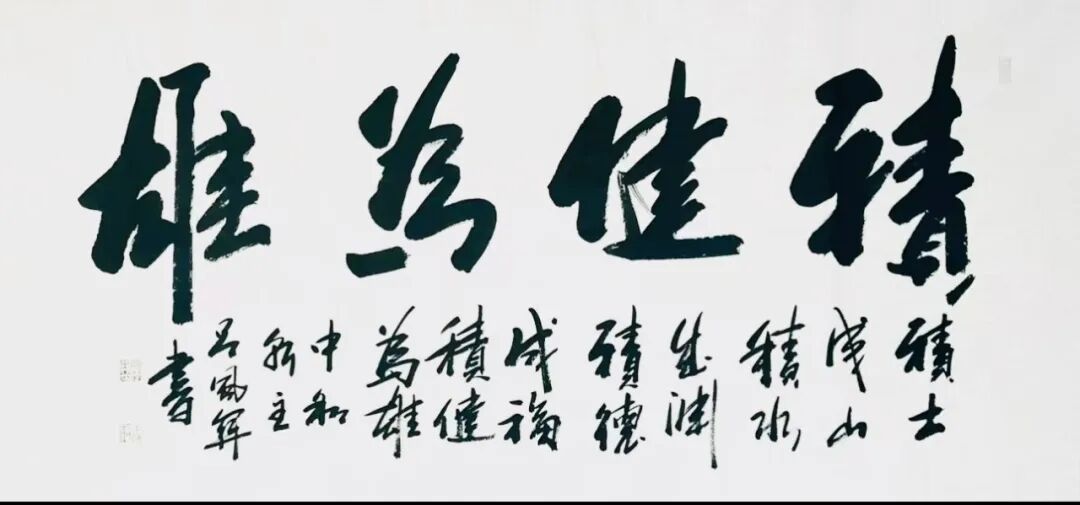 積健為雄
積土
成山
積水
成淵
積德
成福
積健
為雄
中和
主
呂
書